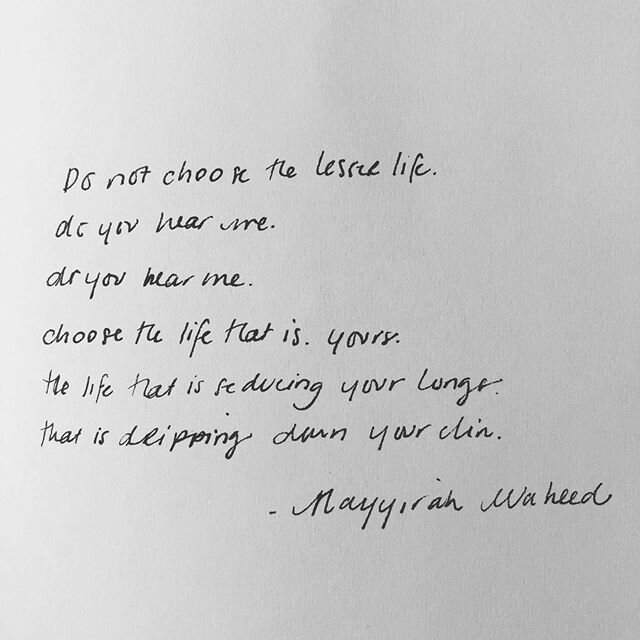 Do not choose the lesser life.
do you hear me.
do you hear me.
choose the life that is. yours.
the life that is seducing your lungs.
that is dripping down your chin.
- Nayyirah Waheed